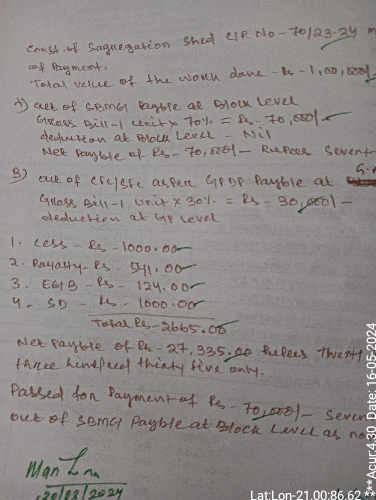 Const. of Sagregation Shed C/R No - 70/23-24
of Payment.
Total value of the work done - Rs - 1,00,000/-
A) out of SBMG Payble at Block Level
Gross Bill-1 unit x 70% = Rs - 70,000/-
deduction at Block Level - Nil
Net Payble of Rs - 70,000/- Rupees Sevent
B) out of CFC/SFC as per GPDP Payble at G.P
Gross Bill-1 Unit x 30% = Rs - 30,000/-
deduction at GP Level
1. Cess - Rs - 1000.00
2. Royalty - Rs - 541.00
3. EGB - Rs - 124.00
4. SD - Rs - 1000.00
Total Rs - 2665.00
Net Payble of Rs - 27,335.00 Rupees Twent
three hundred thirty five only.
Passed for Payment of Rs - 70,000/- Seven
out of SBMG Payble at Block Level as no
20/02/2024
Lat:Lon-21.00:86.62***Acur:4.30 Date: 16-05-2024